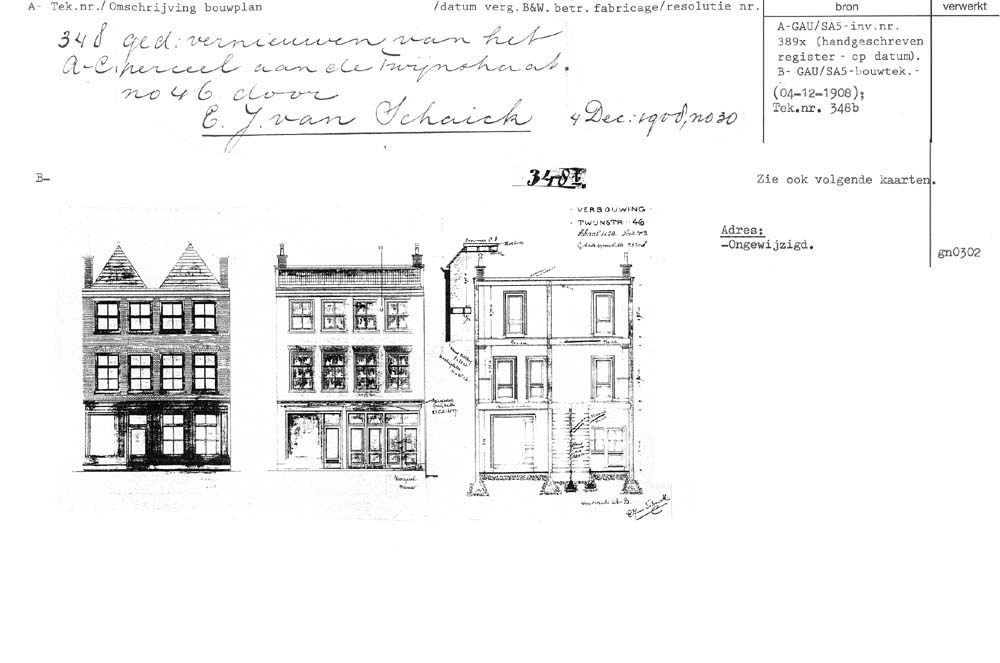 A- Tek.nr./ Omschrijving bouwplan /datum verg.B&W. betr. fabricage/resolutie nr. bron verwerkt
348 ged: vernieuwen van het
A-C. perceel aan de Twijnstraat.
no 46 door
E. J. van Schaick 4 Dec: 1908, no 30
A-GAU/SA5-inv.nr.
389x (handgeschreven
register - op datum).
B- GAU/SA5-bouwtek.-
(04-12-1908);
Tek.nr. 348b
B-
348
Zie ook volgende kaarten.
Adres:
-Ongewijzigd.
gn0302
VERBOUWING
TWIJNSTR 46